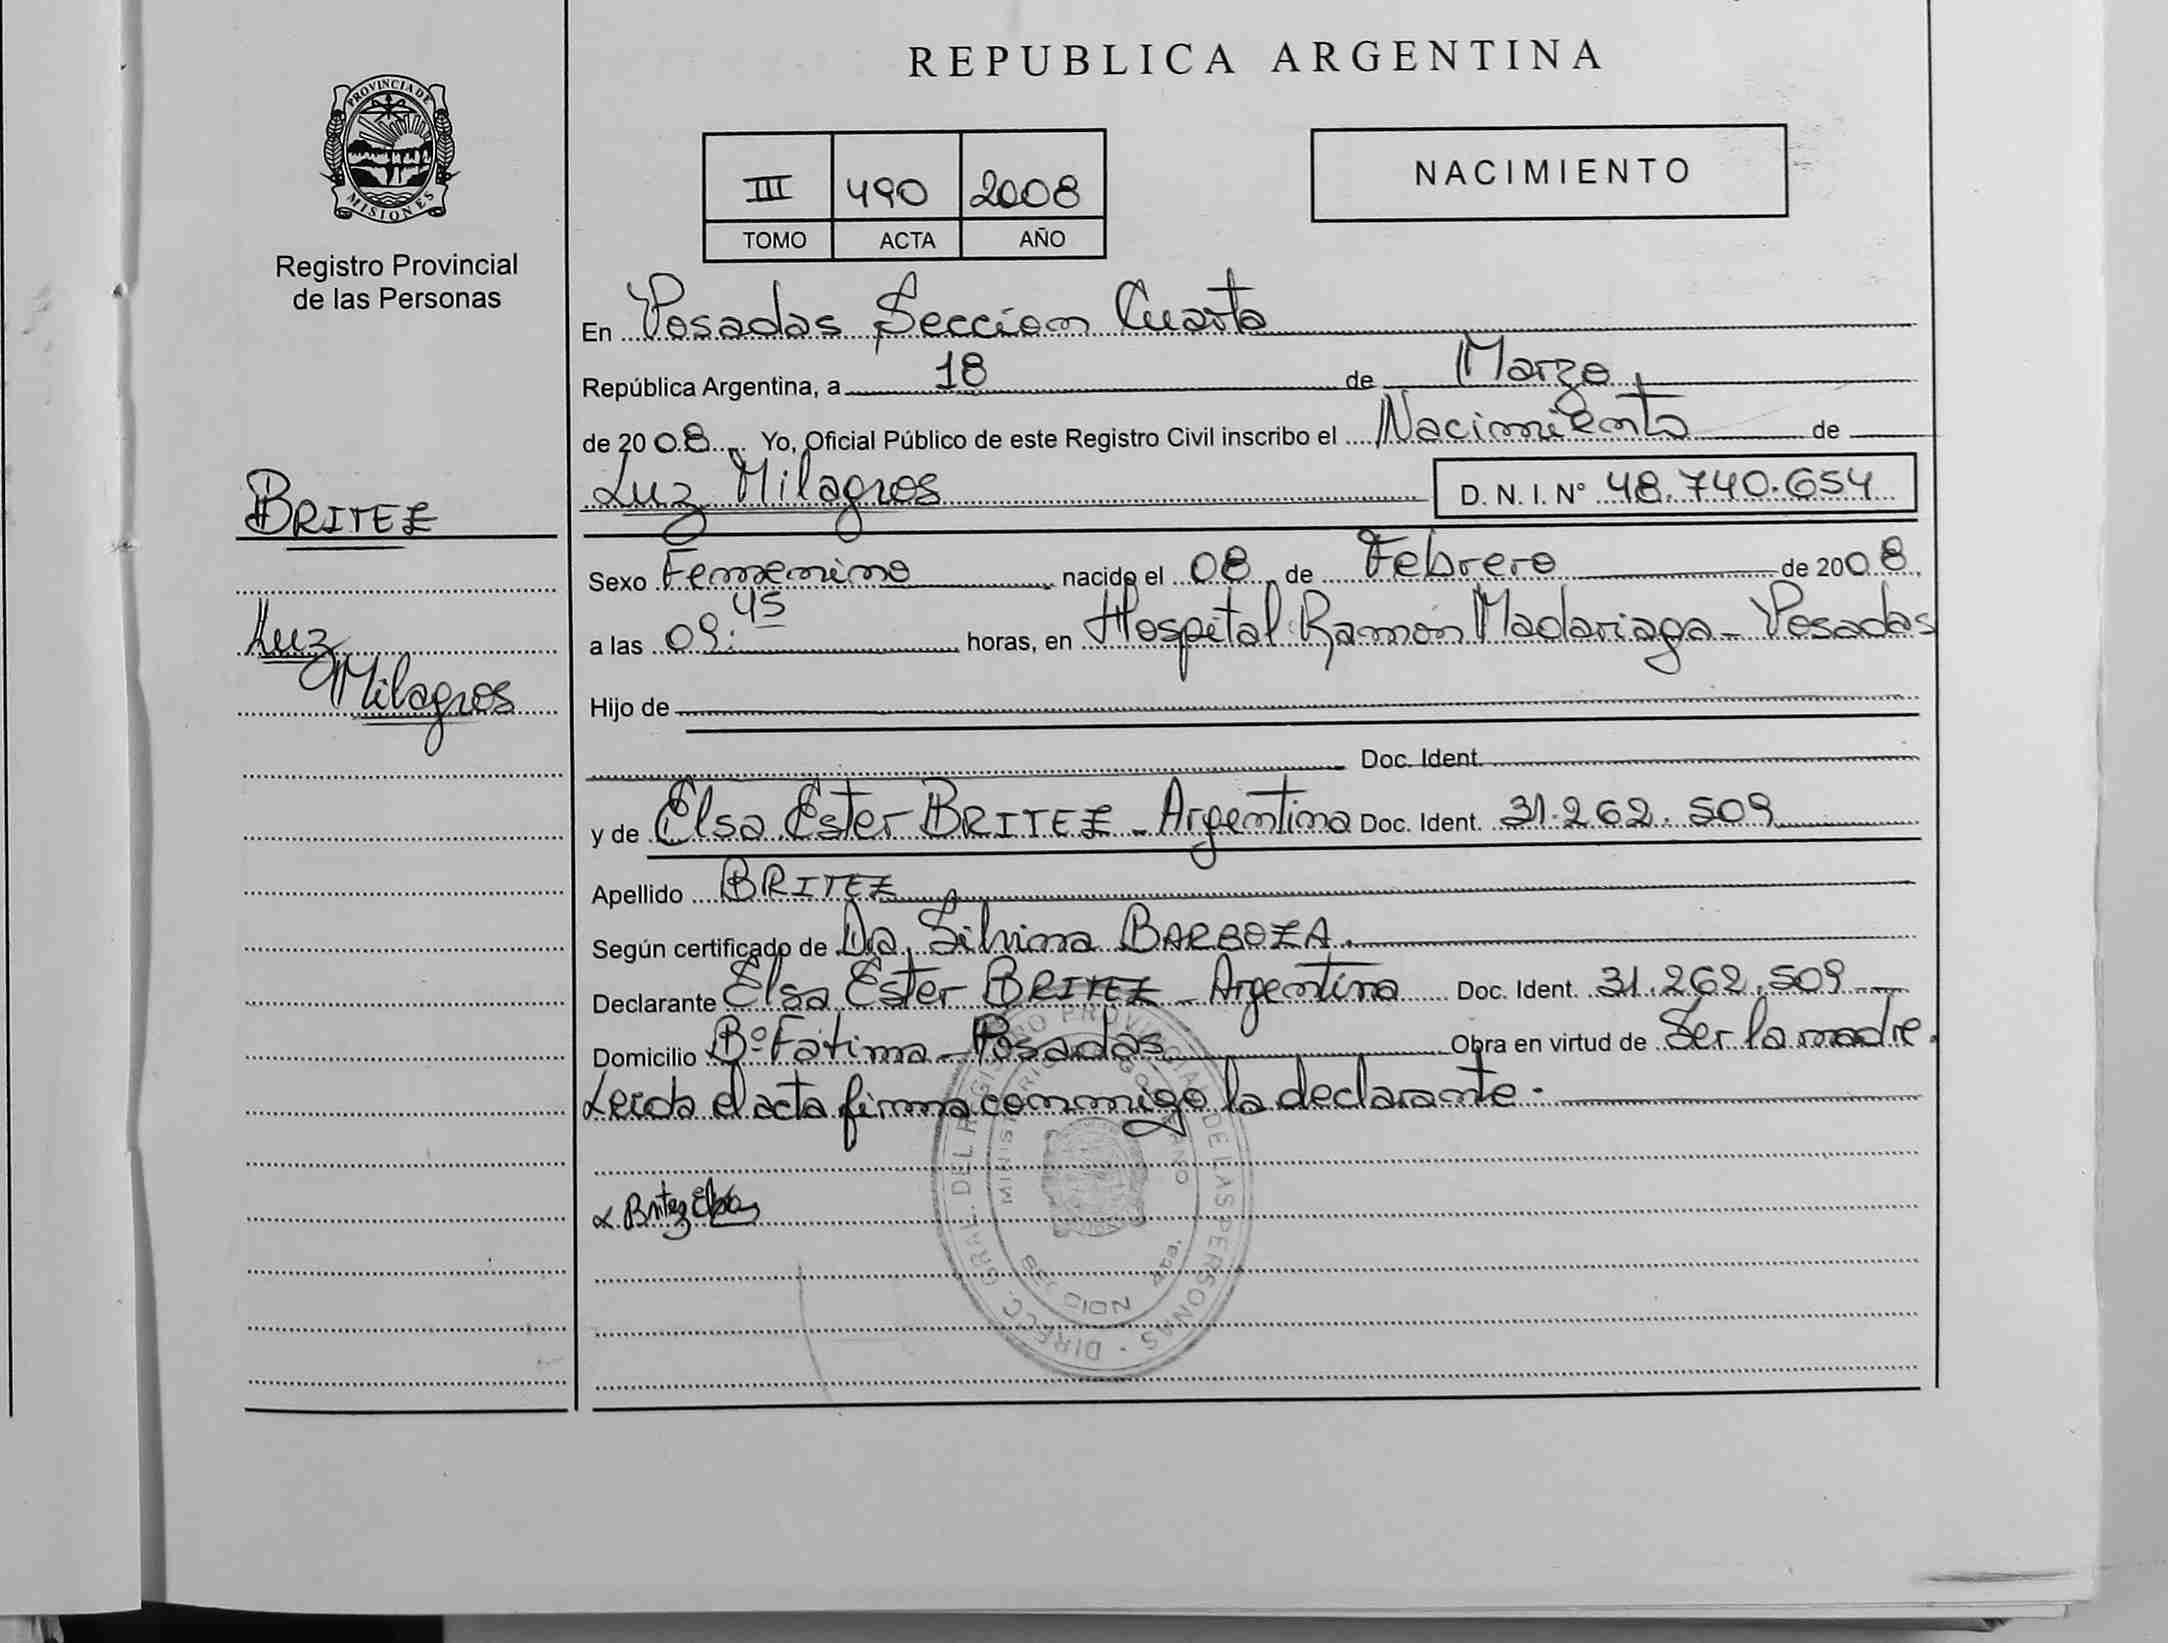 REPUBLICA ARGENTINA
PROVINCIA DE
MISIONES
Registro Provincial
de las Personas
III 490 2008
TOMO ACTA AÑO
NACIMIENTO
En Posadas Sección Cuarta
República Argentina, a 18 de Marzo
de 2008. Yo, Oficial Público de este Registro Civil inscribo el Nacimiento de
Luz Milagros D. N. I. N° 48.740.654
BRITEZ
Luz
Milagros
Sexo Femenino nacido el 08 de Febrero de 2008.
a las 09:45 horas, en Hospital Ramón Madariaga - Posadas
Hijo de
Doc. Ident.
y de Elsa Ester BRITEZ - Argentina Doc. Ident. 31.262.509
Apellido BRITEZ
Según certificado de Dra. Silvina BARBOZA.
Declarante Elsa Ester BRITEZ - Argentina Doc. Ident. 31.262.509
Domicilio B° Fátima - Posadas Obra en virtud de Ser la madre.
Leída el acta firma conmigo la declarante.
Britez Elsa
DIREC. GRAL. DEL REGISTRO PROVINCIAL DE LAS PERSONAS